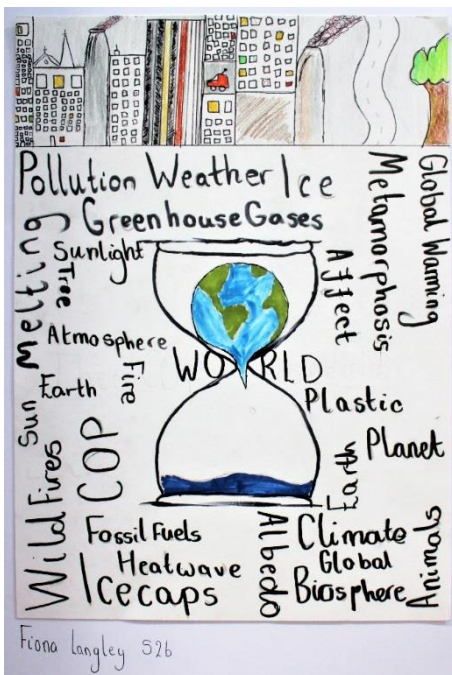 Pollution Weather Ice
Greenhouse Gases
Metamorphosis
Global Warming
Melting
Sunlight
Tree
Affect
Atmosphere
Fire
WORLD
Sun
Earth
Plastic
COP
Planet
Earth
Wild Fires
Fossil Fuels
Heatwave
Icecaps
Albedo
Climate
Global
Biosphere
Animals
Fiona Langley S2b